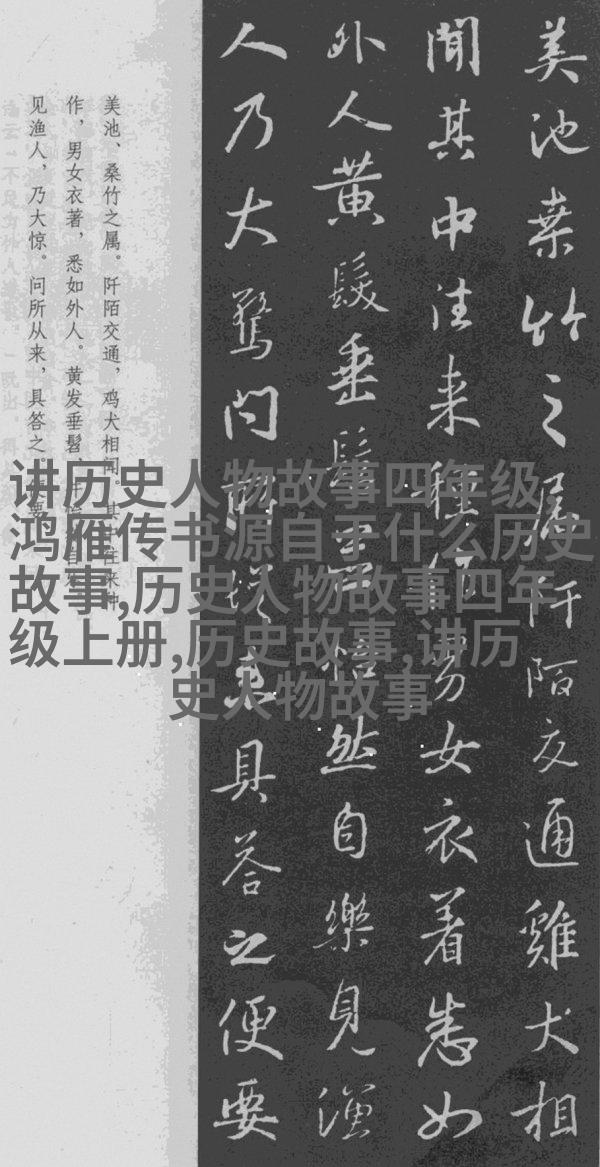 美池桒竹之属阡陌交通雞犬相
聞其中往来種作男女衣着悉如
外人黃髮垂髫並怡然自樂見漁
人乃大驚問所從来具荅之便要
美池、桑竹之属。阡陌交通，鸡犬相闻。其中往来种
作，男女衣著，悉如外人。黄发垂髫，并怡然自乐。
见渔人，乃大惊。问所从来，具答之。便要
讲历史人物故事四年级,
鸿雁传书源自于什么历史
故事,历史人物故事四年
级上册,历史故事,讲历
史人物故事